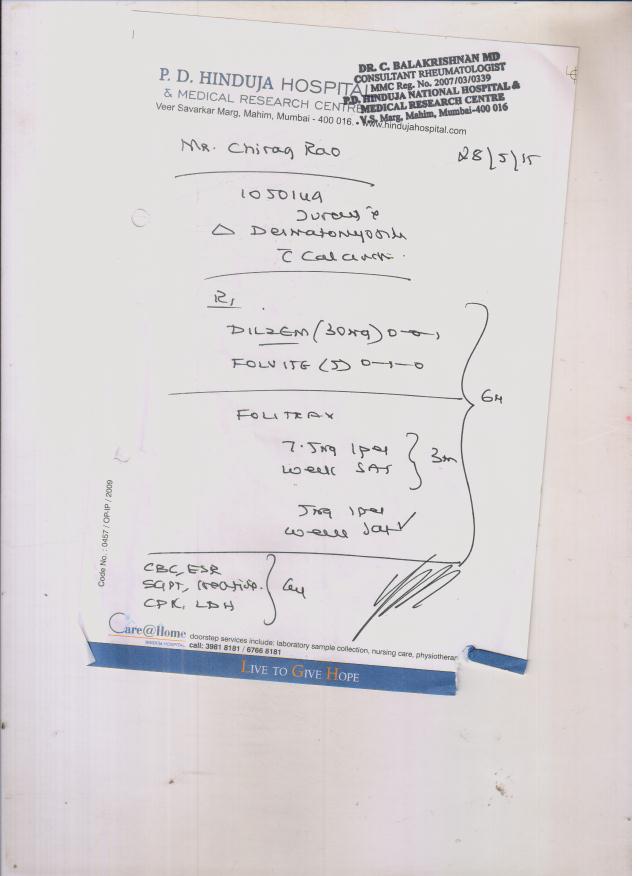 DR. C. BALAKRISHNAN MD
CONSULTANT RHEUMATOLOGIST
MMC Reg. No. 2007/03/0339
P.D. HINDUJA NATIONAL HOSPITAL &
MEDICAL RESEARCH CENTRE
V.S. Marg, Mahim, Mumbai-400 016
P. D. HINDUJA HOSPITAL
& MEDICAL RESEARCH CENTRE
Veer Savarkar Marg, Mahim, Mumbai - 400 016. • www.hindujahospital.com
Mr. Chirag Rao
28/5/15
1050149
△ Dermatomyositis
c̄
R,
DILZEM (30mg) 0-0-1
FOLVITE (5) 0-1-0
6m
FOLITRAX
7.5mg 1 per
week SAT
3m
5mg 1 per
week SAT ✓
CBC, ESR
SGPT, creatinine.
CPK, LDH
Code No. : 0457 / OP-IP / 2009
Care@Home doorstep services include: laboratory sample collection, nursing care, physiotherap
HINDUJA HOSPITAL call: 3981 8181 / 6766 8181
LIVE TO GIVE HOPE